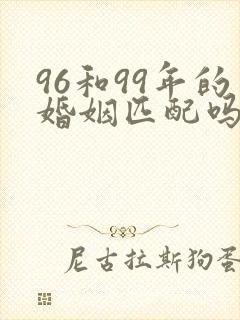 96和99年的
婚姻匹配吗
尼古拉斯狗蛋